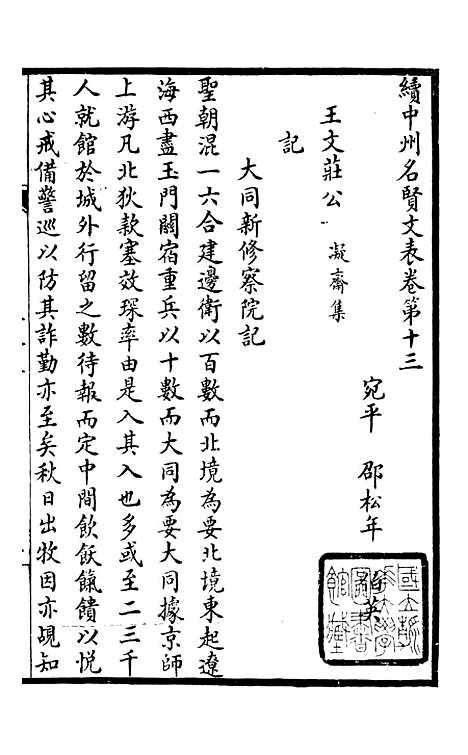 續中州名賢文表卷第十三
宛平 邵松年 伯英
王文莊公 凝齋集
記
大同新修察院記
聖朝混一六合建邊衛以百數而北境為要北境東起遼
海西盡玉門闗宿重兵以十數而大同為要大同據京師
上游凡北狄款塞效琛率由是入其入也多或至二三千
人就館於城外行留之數待報而定中間飲飫餼饋以悅
其心戒備警巡以防其詐勤亦至矣秋日出牧因亦覘知